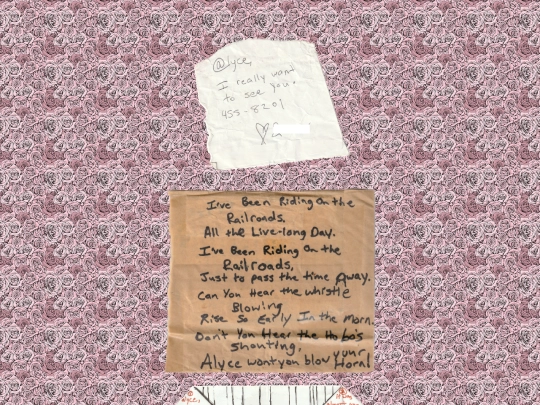 @lyce,
I really want
to see you.
455-8201
I've Been Riding On the
Railroads,
All the Live-long Day.
I've Been Riding On the
Railroads,
Just to pass the time Away.
Can You Hear the whistle
Blowing
Rise So Early In the Morn.
Don't You Heer the Hobo's
Shouting,
Alyce wont you blow your Horn!